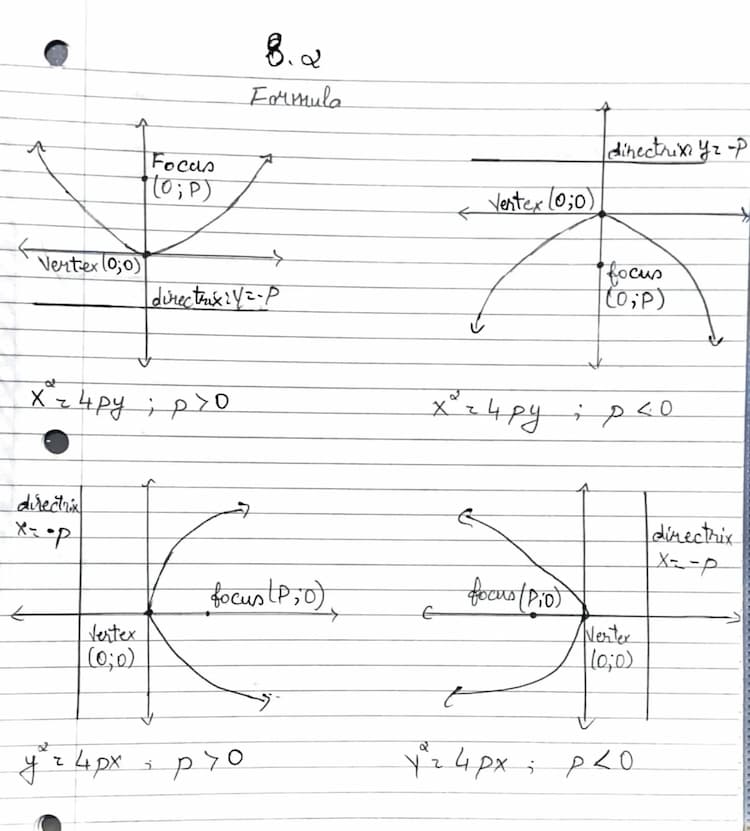 8.2
Formula
Focus
(0;P)
Vertex(0;0)
directrix: y=-P
x²=4py ; p>0
directrix: y=-P
Vertex(0;0)
focus
(0;P)
x²=4py ; p<0
directrix
x=-p
focus(P;0)
Vertex
(0;0)
y²=4px ; p>0
directrix
x=-p
focus(P;0)
Vertex
(0;0)
y²=4px ; p<0